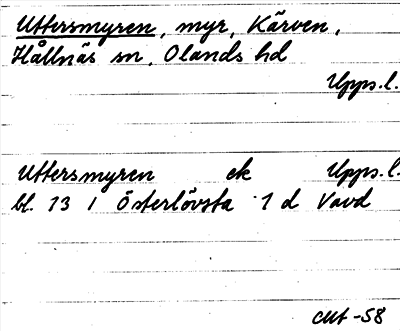 Uttersmyren, myr, Kärven,
Hållnäs sn, Olands hd
Upps.l.
Uttersmyren ek Upps.l.
bl. 13 I Österlövsta 1 d Vavd
-58